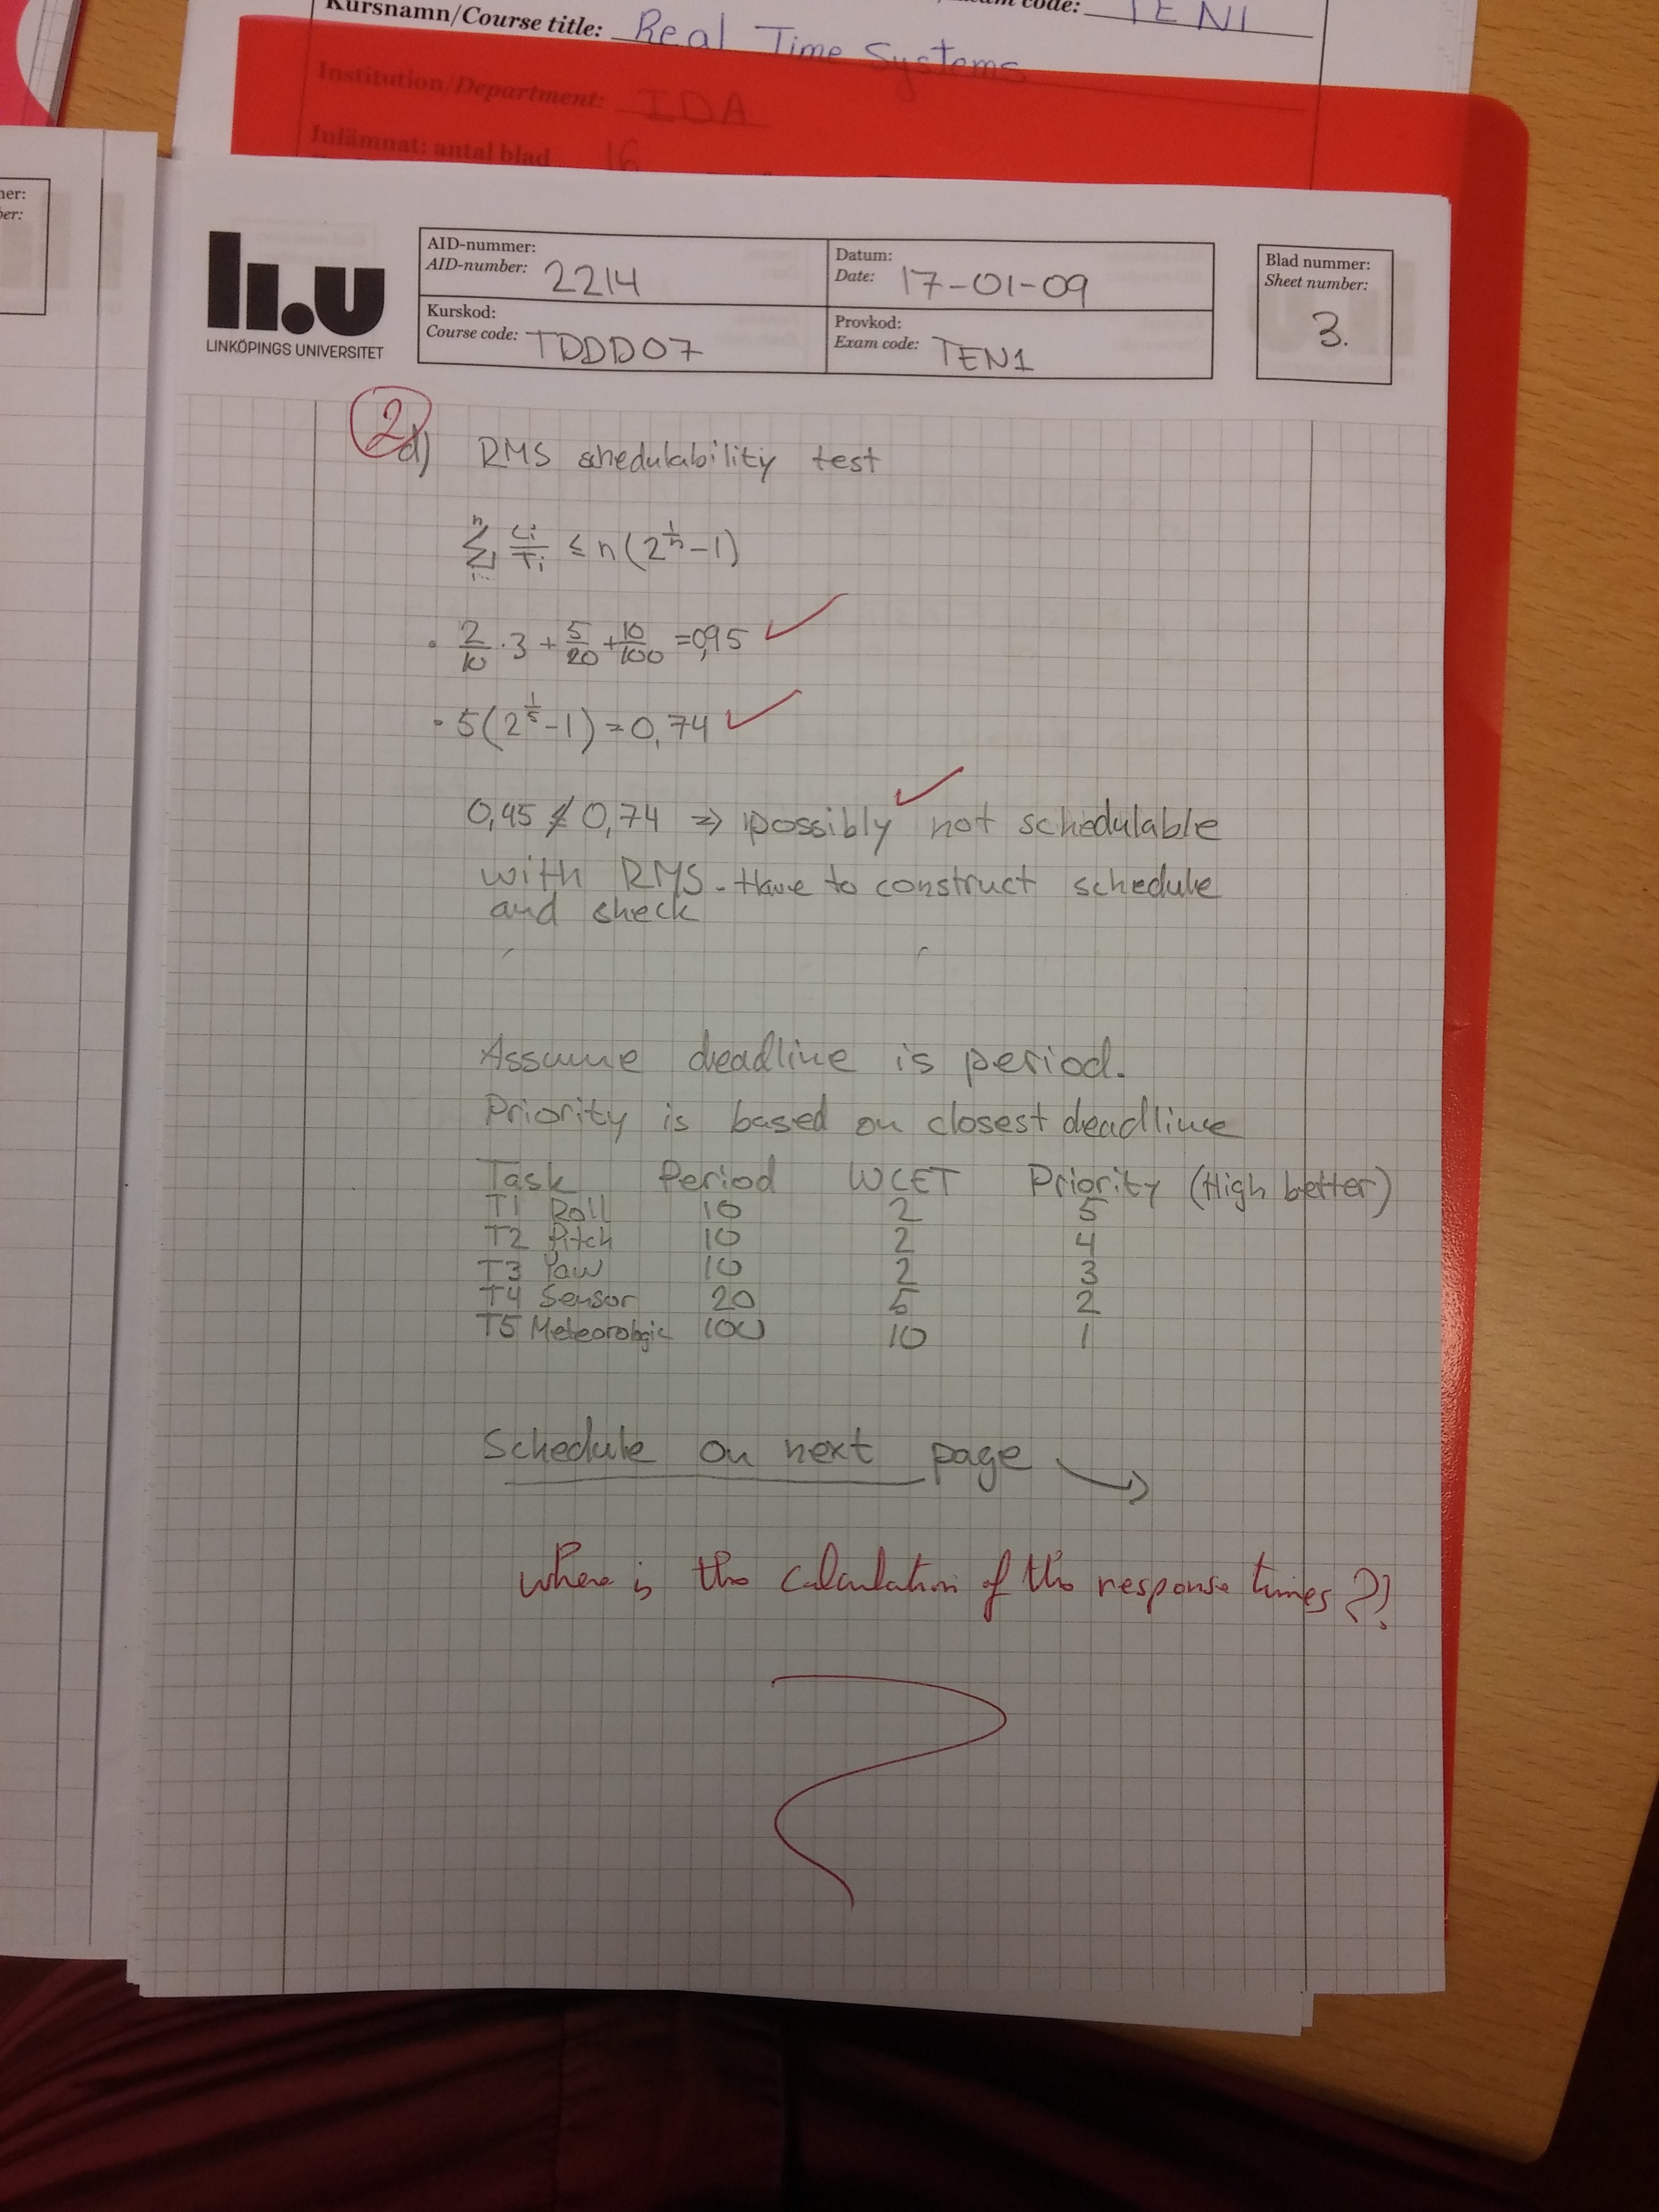 Kursnamn/Course title: Real Time Systems
code: TEN1
Institution/Department: IDA
Inlämnat: antal blad 16
LINKÖPINGS UNIVERSITET
AID-nummer:
AID-number: 2214
Datum:
Date: 17-01-09
Blad nummer:
Sheet number:
3.
Kurskod:
Course code: TDDD07
Provkod:
Exam code: TEN1
2
d) RMS schedulability test
n
∑ Ci/Ti ≤ n(2^(1/n) - 1)
i=1
· 2/10 · 3 + 5/20 + 10/100 = 0,95 ✓
· 5(2^(1/5) - 1) = 0,74 ✓
0,95 ≰ 0,74 => possibly ✓ not schedulable
with RMS. Have to construct schedule
and check
Assume deadline is period.
Priority is based on closest deadline
Task Period WCET Priority (High better)
T1 Roll 10 2 5
T2 Pitch 10 2 4
T3 Yaw 10 2 3
T4 Sensor 20 5 2
T5 Meteorologic 100 10 1
Schedule on next page →
Where is the calculation of the response times ??